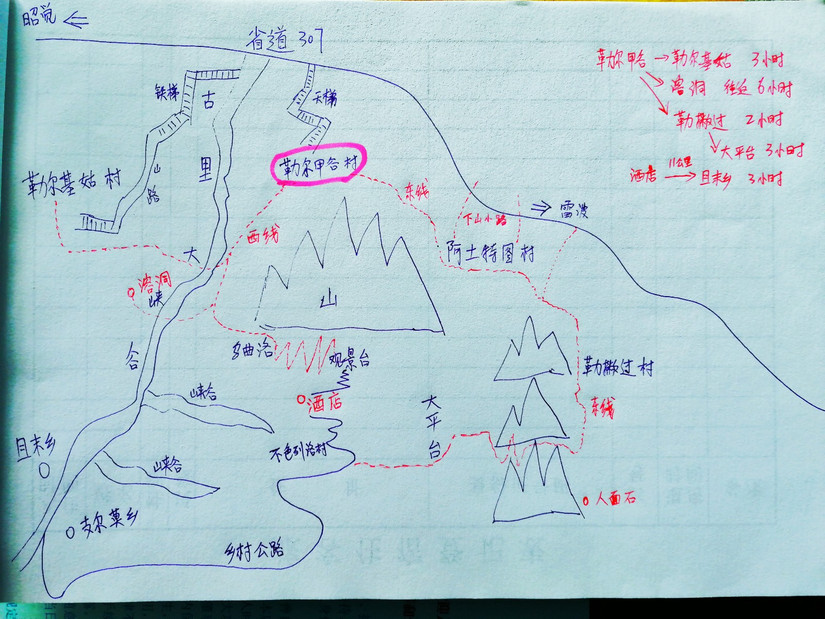 昭觉
省道 307
勒尔甲谷 → 勒尔基姑 3小时
溶洞 往返 6小时
勒撒过 2小时
大平台 3小时
酒店 11公里 → 且末乡 3小时
铁梯
天梯
古里大峡谷
勒尔甲谷村
勒尔基姑村
山路
东线
西线
下山小路
雷波
阿土特图村
溶洞
山
多曲洛
观景台
勒撒过村
酒店
大平台
东线
峡谷
且末乡
不色列洛村
峡谷
人面石
支尔莫乡
乡村公路